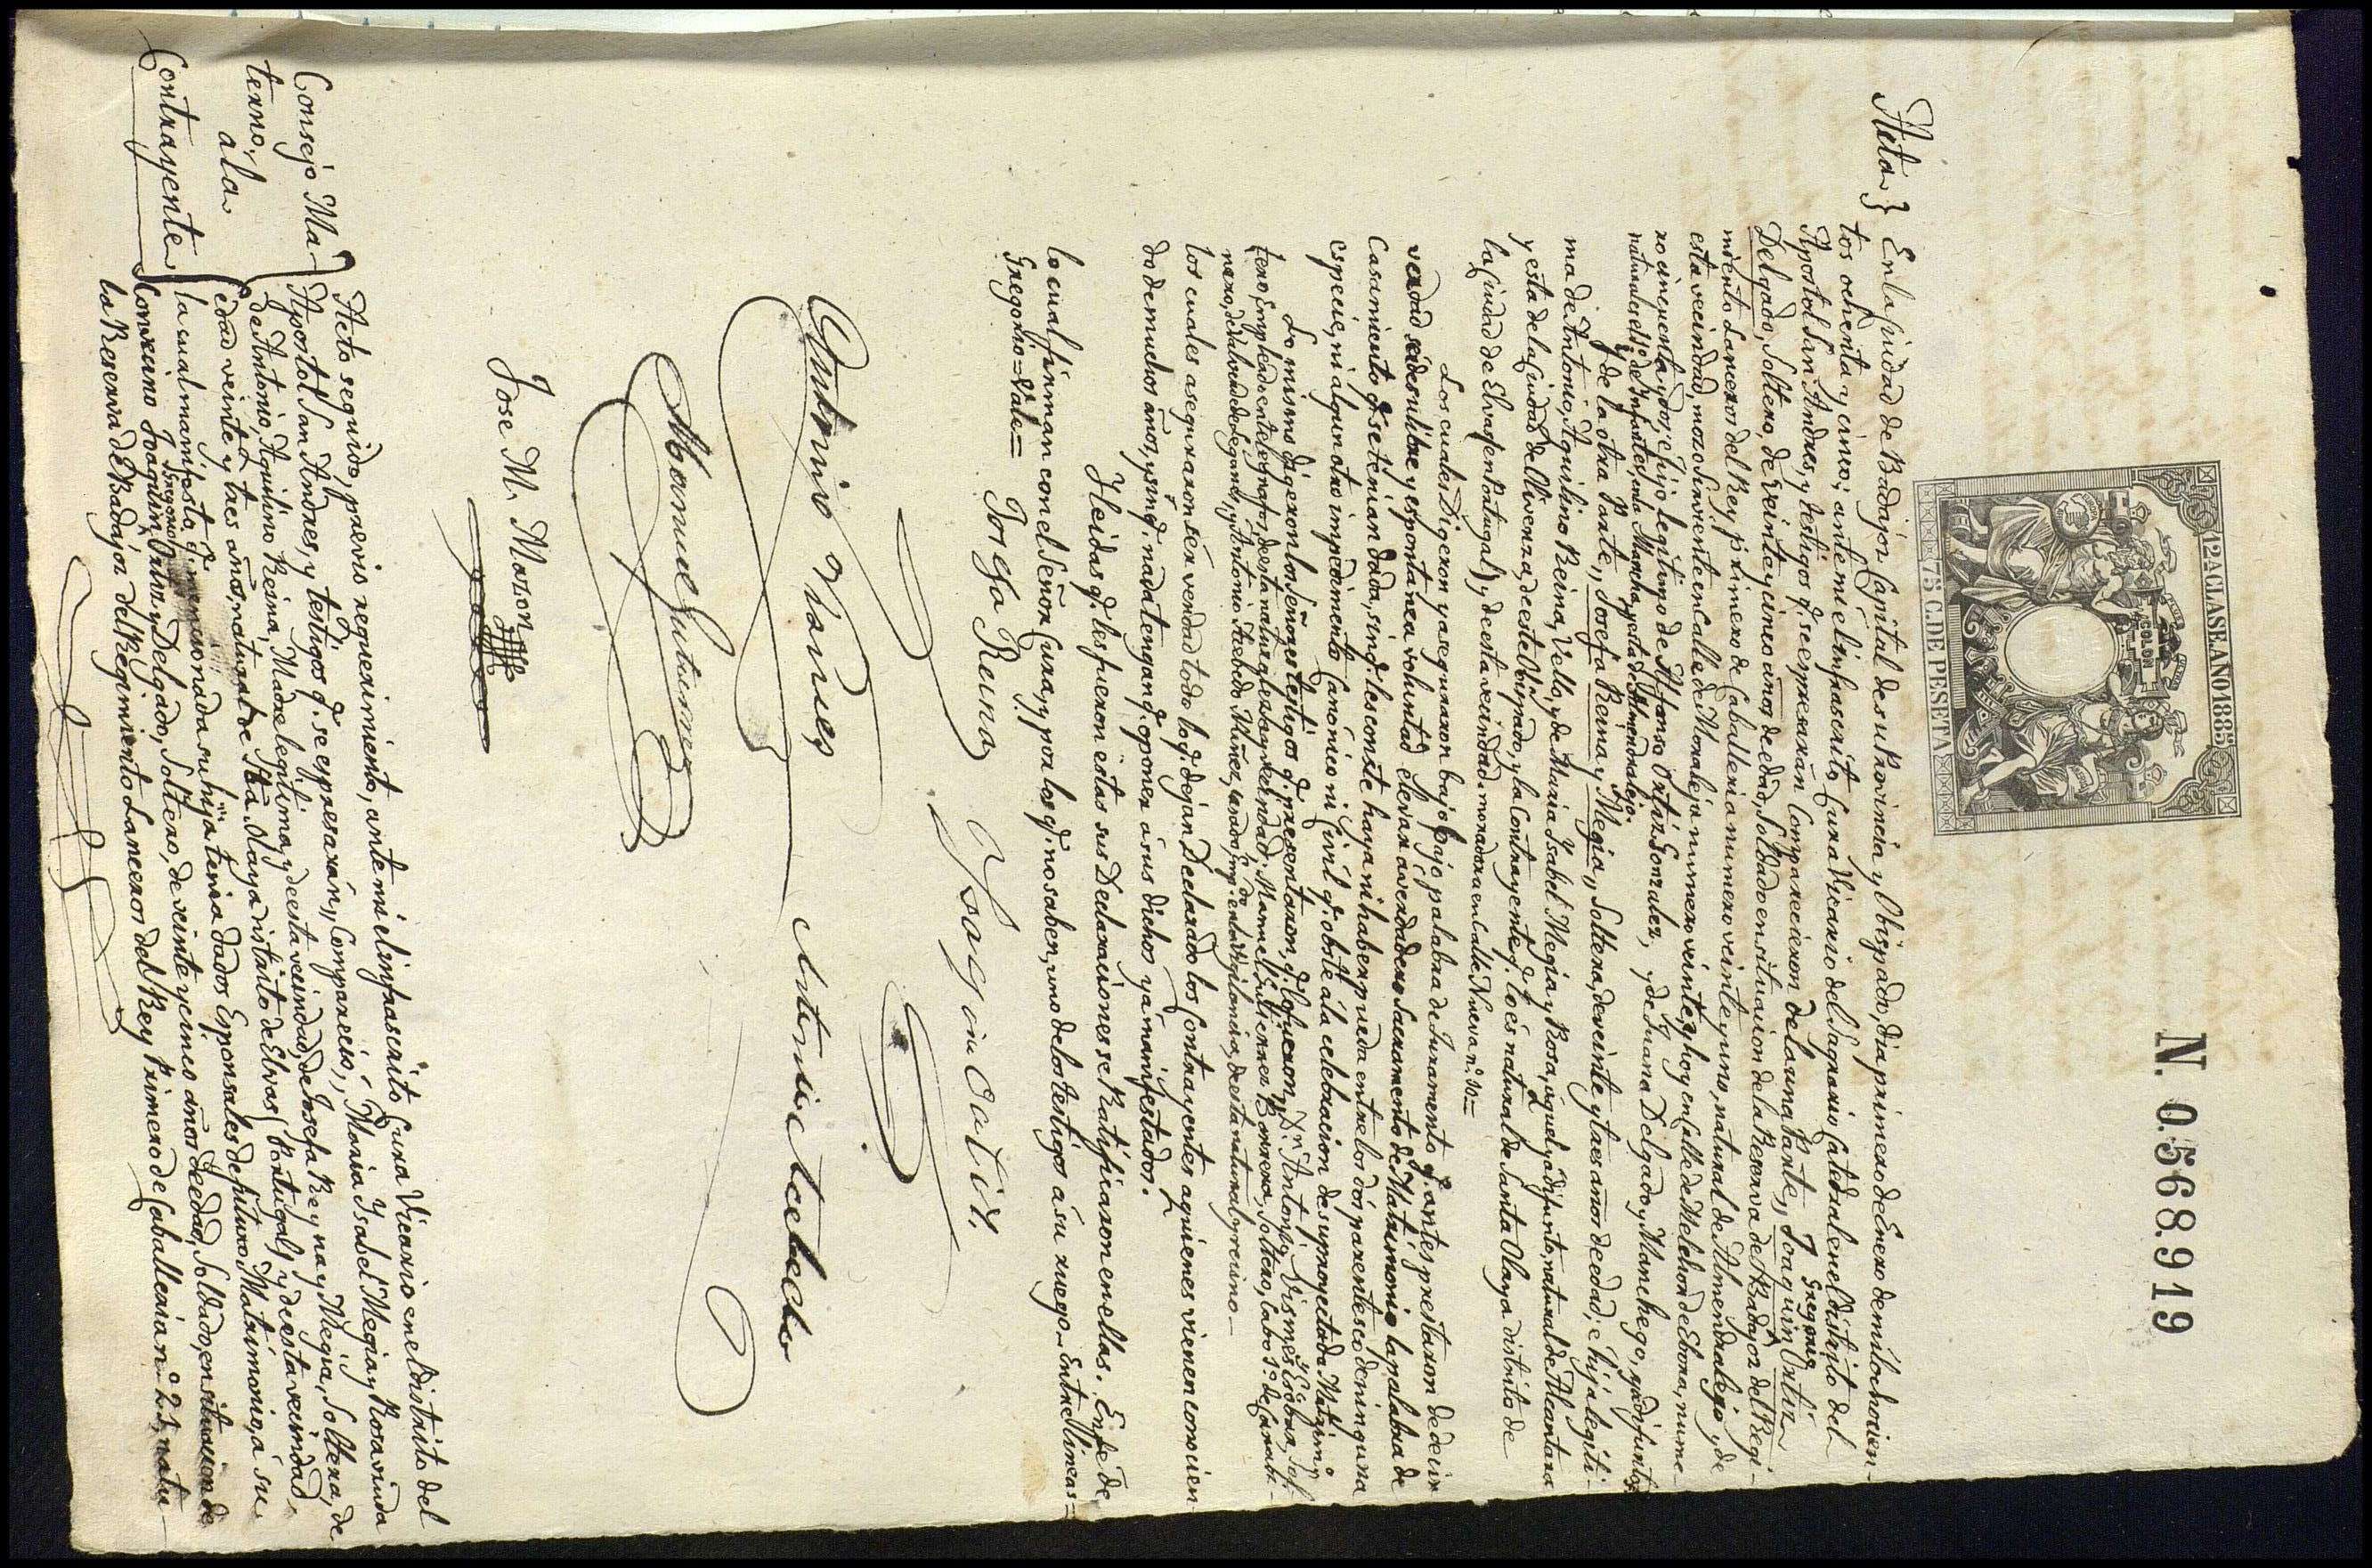 12ª CLASE. AÑO 1885
COLON
75 C. DE PESETA
N. 0.568.919
Acta } En la Ciudad de Badajoz Capital de su Provincia y Obispado, dia primero de Enero de mil ochocien-
tos ochenta y cinco; ante mi el infrascrito Cura Vicario del Sagrario Catedral en el distrito del
Apostol San Andres, y testigos q. se espresarán Comparecieron de la una Parte,, Joaquin Gregorio Ortiz
Delgado, Soltero, de veinte y cinco años de edad, Soldado en situacion de la Reserva de Badajoz del Regi-
miento Lanceros del Rey primero de Caballeria numero veinte y uno, natural de Almendralejo y de
esta vecindad, mozo Sirviente en Calle de Moraleja numero veinte, y hoy en Calle de Melchor de Ebora, nume-
ro cincuenta y dos, e hijo legitimo de Alfonso Ortiz Gonzalez, y de Juana Delgado y Manchego, ya difuntos
naturales el 1º de Infantes, en la Mancha y esta de Almendralejo.
y de la otra Parte,, Josefa Reina y Megia,, Soltera, de veinte y tres años de edad, e hija legiti-
ma de Antonio, Aquilino Reina, Vello, y de Maria Ysabel Megia y Rosa, aquel ya difunto, natural de Alcantara
y esta de la Ciudad de Olivenza, de este Obispado, y la Contrayente q. lo es natural de Santa Olaya distrito de
la Ciudad de Elvas (en Portugal), y de esta vecindad, moradora en Calle Nueva n.º 10=
Los cuales Digeron y aseguraron bajo palabra de Juramento q. antes prestaron de decir
verdad, ser de su libre y espontánea voluntad elevar a verdadero Sacramento de Matrimonio la palabra de
Casamiento q. se tenian dada, sin q. les conste haya ni haber pueda entre los dos parentesco de ninguna
especie, ni algun otro impedimento Canónico ni Civil q. obste á la celebracion de su proyectado Matrimº
Lo mismo digeron los Señores testigos q. presentaron, q. lo fueron, Dn. Antonio Vismes Escobar, Sol-
tero, Empleado en telegrafos, de esta naturaleza y vecindad; Manuel Gutierrez Borrera, Soltero, Cabo 1º de Carabi-
nero, de Valverde de Leganés, y Antonio Acebedo Nuñez, casado, Empdo en la Vigilancia, de esta natural y vecino—
los cuales aseguraron ser verdad todo lo q. dejan Declarado los Contrayentes a quienes vienen conocien-
do de muchos años, y sin q. nada tengan q. oponer á sus dichos ya manifestados.
Y leidas q. les fueron estas sus Declaraciones se Ratificaron en ellas. En fé de
lo cual firman con el Señor Cura, y por los q. no saben, uno de los testigos a su ruego—Entre lineas=
Gregorio=Vale=
Josefa Reina
Joaquin Ortiz.
Antonio Vismes
Antonio Acebedo
Manuel Gutierrez
Jose M. Mazon
Consejo Ma-
terno,
á la
Contrayente
Acto seguido, previo requerimiento, ante mi el infrascrito Cura Vicario en el Distrito del
Apostol San Andres, y testigos q. se espresarán,, Compareció,, Maria Ysabel Megia y Rosa viuda
de Antonio, Aquilino Reina, Madre legitima, y de esta vecindad, de Josefa Reyna y Megia, Soltera, de
edad veinte y tres años, natural de Sta. Olaya distrito de Elvas (Portugal) y de esta vecindad,
la cual manifestó q. mencionada su hija tenia dados Esponsales de futuro Matrimonio, á su
Convecino Joaquin Gregorio Ortiz y Delgado, Soltero, de veinte y cinco años de edad, Soldado, en situacion de
la Reserva de Badajoz del Regimiento Lanceros del Rey Primero de Caballeria n.º 21, natu-